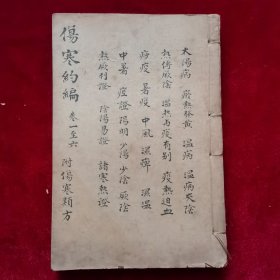 太陽病 瘀熱發黃 溫病 溫病夾陰
熱傳厥陰 溫熱與疫有別 疫熱迫血
病疫 暑疫 中風 濕痺 濕溫
中暑 痙證 陽明 少陽 少陰 厥陰
熱厥利證 陰陽易證 諸寒熱證
傷寒約編 卷一至六 附傷寒類方